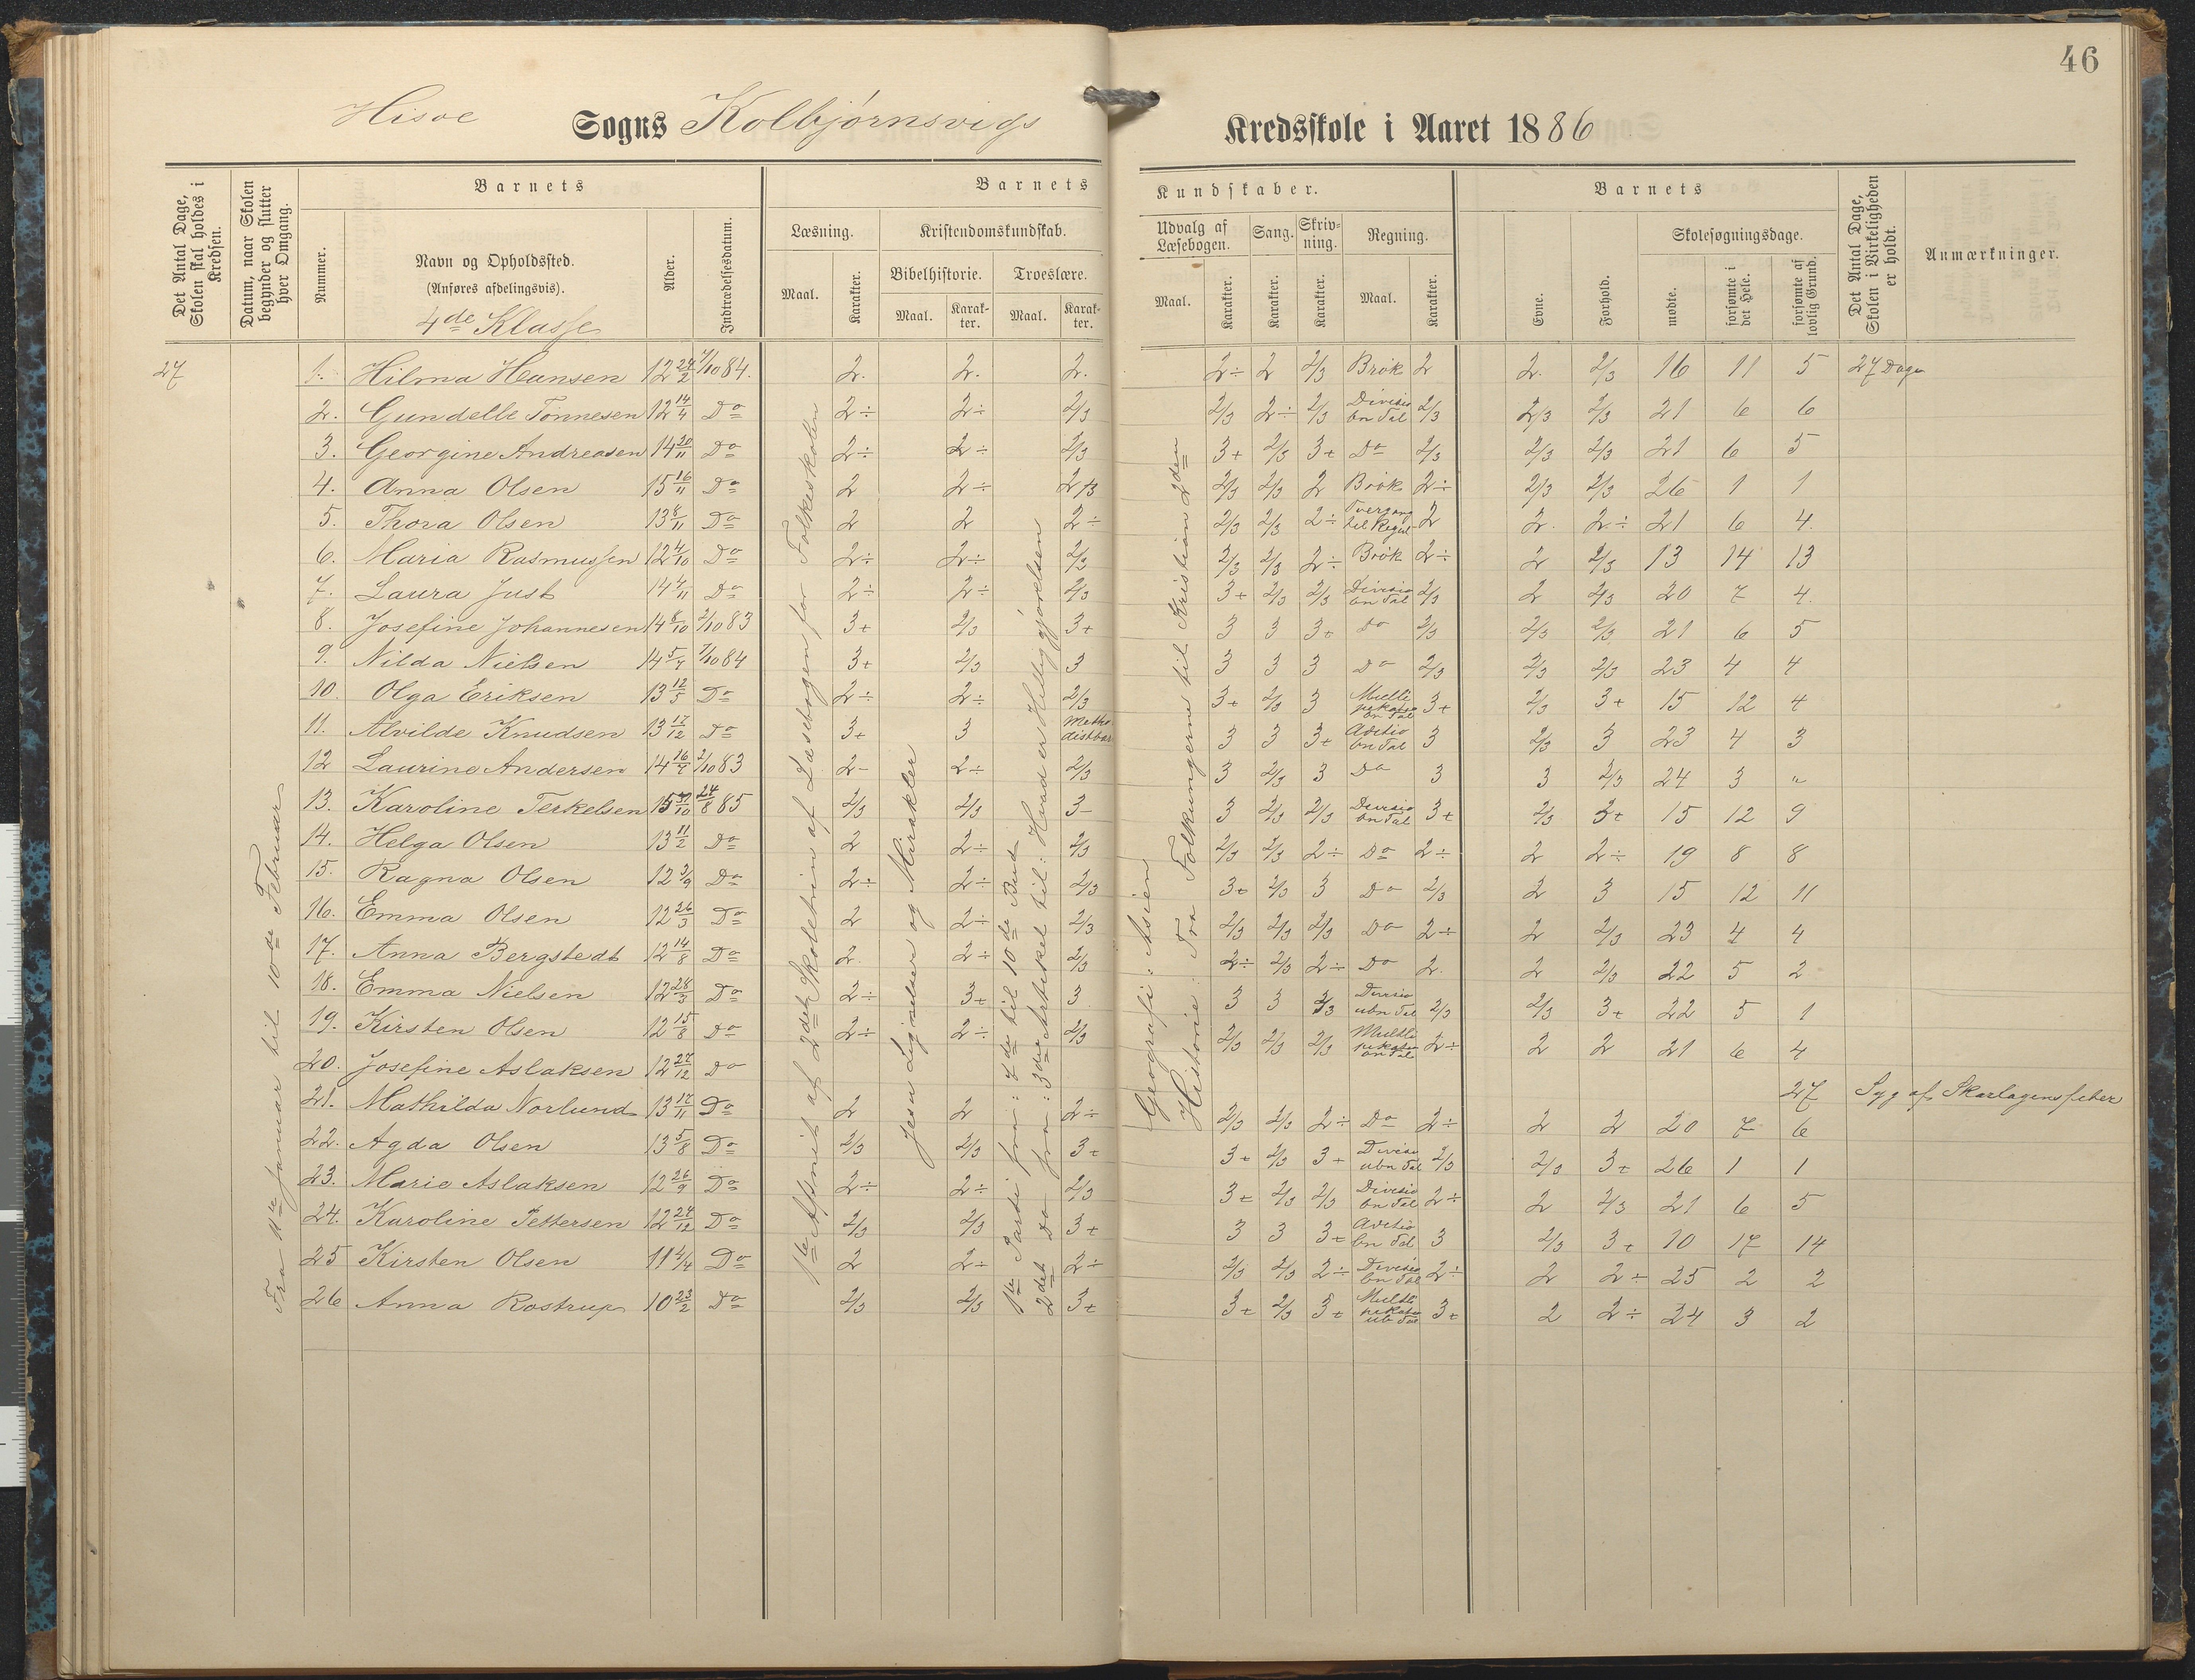 46
Hisøe Sogns Kolbjørnsvigs Kredsskole i Aaret 1886
Det Antal Dage, Skolen skal holdes i Kredsen.
Datum, naar Skolen begynder og slutter hver Omgang.
Barnets
Nummer.
Navn og Opholdssted.
(Anføres afdelingsvis).
4de Klasse
Alder.
Indtrædelsesdatum.
Barnets Kundskaber.
Læsning.
Maal.
Karakter.
Kristendomskundskab.
Bibelhistorie.
Maal.
Karakter.
Troeslære.
Maal.
Karakter.
Udvalg af Læsebogen.
Maal.
Karakter.
Sang.
Karakter.
Skrivning.
Karakter.
Regning.
Maal.
Karakter.
Barnets
Evne.
Forhold.
Skolesøgningsdage.
mødte.
forsømte i det Hele.
forsømte af lovlig Grund.
Det Antal Dage, Skolen i Virkeligheden er holdt.
Anmærkninger.
27
Fra 11te Januar til 10de Februar
1ste Afsnit af 2det Skoletrin af Læsebogen for Folkeskolen
Jesu Lignelser og Mirakler
1ste Parti fra: 4de til 10de Bud
2det Do fra: 3die Artikel til: Hvad er Helliggjørelsen
Geografi: Asien
Historie: Fra Folkungerne til Kristian 2den
1. Hilma Hansen 12 24/2 7/10 84. 2. 2. 2. 2÷ 2 2/3 Brøk 2 2. 2/3 16 11 5 27 Dage
2. Gundelle Tønnesen 12 14/4 Do 2÷ 2÷ 2/3 2/3 2÷ 2/3 Divisio bn Tal 2/3 2/3 2/3 21 6 6
3. Georgine Andreasen 14 20/11 Do 2÷ 2÷ 2/3 3+ 2/3 3+ Do 2/3 2/3 2/3 21 6 5
4. Anna Olsen 15 16/11 Do 2 2÷ 2/3 2/3 2/3 2 Brøk 2÷ 2/3 2/3 26 1 1
5. Thora Olsen 13 8/11 Do 2 2 2÷ 2/3 2/3 2÷ til Regul 2 2. 2÷ 21 6 4.
6. Maria Rasmussen 12 4/10 Do 2÷ 2÷ 2/3 2/3 2/3 2÷ Brøk 2÷ 2 2/3 13 14 13
7. Laura Just 14 4/11 Do 2÷ 2÷ 2/3 3+ 2/3 2/3 Divisio bn Tal 2/3 2 2/3 20 7 4.
8. Josefine Johannesen 14 8/10 2/10 83 3+ 2/3 3+ 3 3 3+ Do 2/3 2/3 2/3 21 6 5
9. Nilda Nielsen 14 5/4 7/10 84 3+ 2/3 3 3 3 3 Do 2/3 2/3 2/3 23 4 4
10. Olga Eriksen 13 12/5 Do 2÷ 2÷ 2/3 3+ 2/3 3 Multi pikatio bn Tal 3+ 2/3 3+ 15 12 4
11. Alvilde Knudsen 13 17/12 Do 3+ 3 Metho distbar 3 3 3+ Aditio bn Tal 3 2/3 3 23 4 3
12 Laurine Andersen 14 16/7 2/10 83 2- 2÷ 2/3 3 2/3 3 Do 3 3 2/3 24 3 "
13. Karoline Terkelsen 15 /10 24/8 85 2/3 2/3 3- 3 2/3 2/3 Divisio bn Tal 3+ 2/3 3+ 15 12 9
14. Helga Olsen 13 11/2 Do 2 2÷ 2/3 2/3 2/3 2÷ Do 2÷ 2 2÷ 19 8 8
15. Ragna Olsen 12 3/9 Do 2÷ 2÷ 2/3 3+ 2/3 3 Do 2/3 2 3 15 12 11
16. Emma Olsen 12 26/3 Do 2 2÷ 2/3 2/3 2/3 2/3 Do 2÷ 2 2/3 23 4 4
17. Anna Bergstedt 12 14/8 Do 2. 2÷ 2/3 2÷ 2/3 2÷ Do 2. 2 2/3 22 5 2
18. Emma Nielsen 12 28/3 Do 2÷ 3+ 3 3 3 2/3 Divisio ubn Tal 2/3 2/3 3+ 22 5 1
19. Kirsten Olsen 12 15/8 Do 2÷ 2÷ 2/3 2/3 2/3 2/3 Multi pikatio bn Tal 2÷ 2 2 21 6 4
20. Josefine Aslaksen 12 27/12 Do 27 Syg af Skarlagensfeber
21. Mathilda Norlund 13 17/11 Do 2 2 2÷ 2/3 2/3 2÷ Do 2÷ 2 2 20 7 6
22. Agda Olsen 13 5/8 Do 2/3 2/3 3+ 3+ 2/3 3+ Divisio ubn Tal 2/3 2/3 3+ 26 1 1
23. Marie Aslaksen 12 26/9 Do 2÷ 2÷ 2/3 3+ 2/3 2/3 Divisio bn Tal 2÷ 2 2/3 21 6 5
24. Karoline Pettersen 12 24/12 Do 2/3 2/3 3+ 3 3 3+ Aditio bn Tal 3 2/3 3+ 10 17 14
25 Kirsten Olsen 11 4/4 Do 2 2÷ 2÷ 2/3 2/3 2÷ Divisio bn Tal 2÷ 2 2÷ 25 2 2
26 Anna Rostrup 10 23/2 Do 2/3 2/3 3+ 3+ 2/3 3+ Multi pikatio ub Tal 3+ 2 2÷ 24 3 2